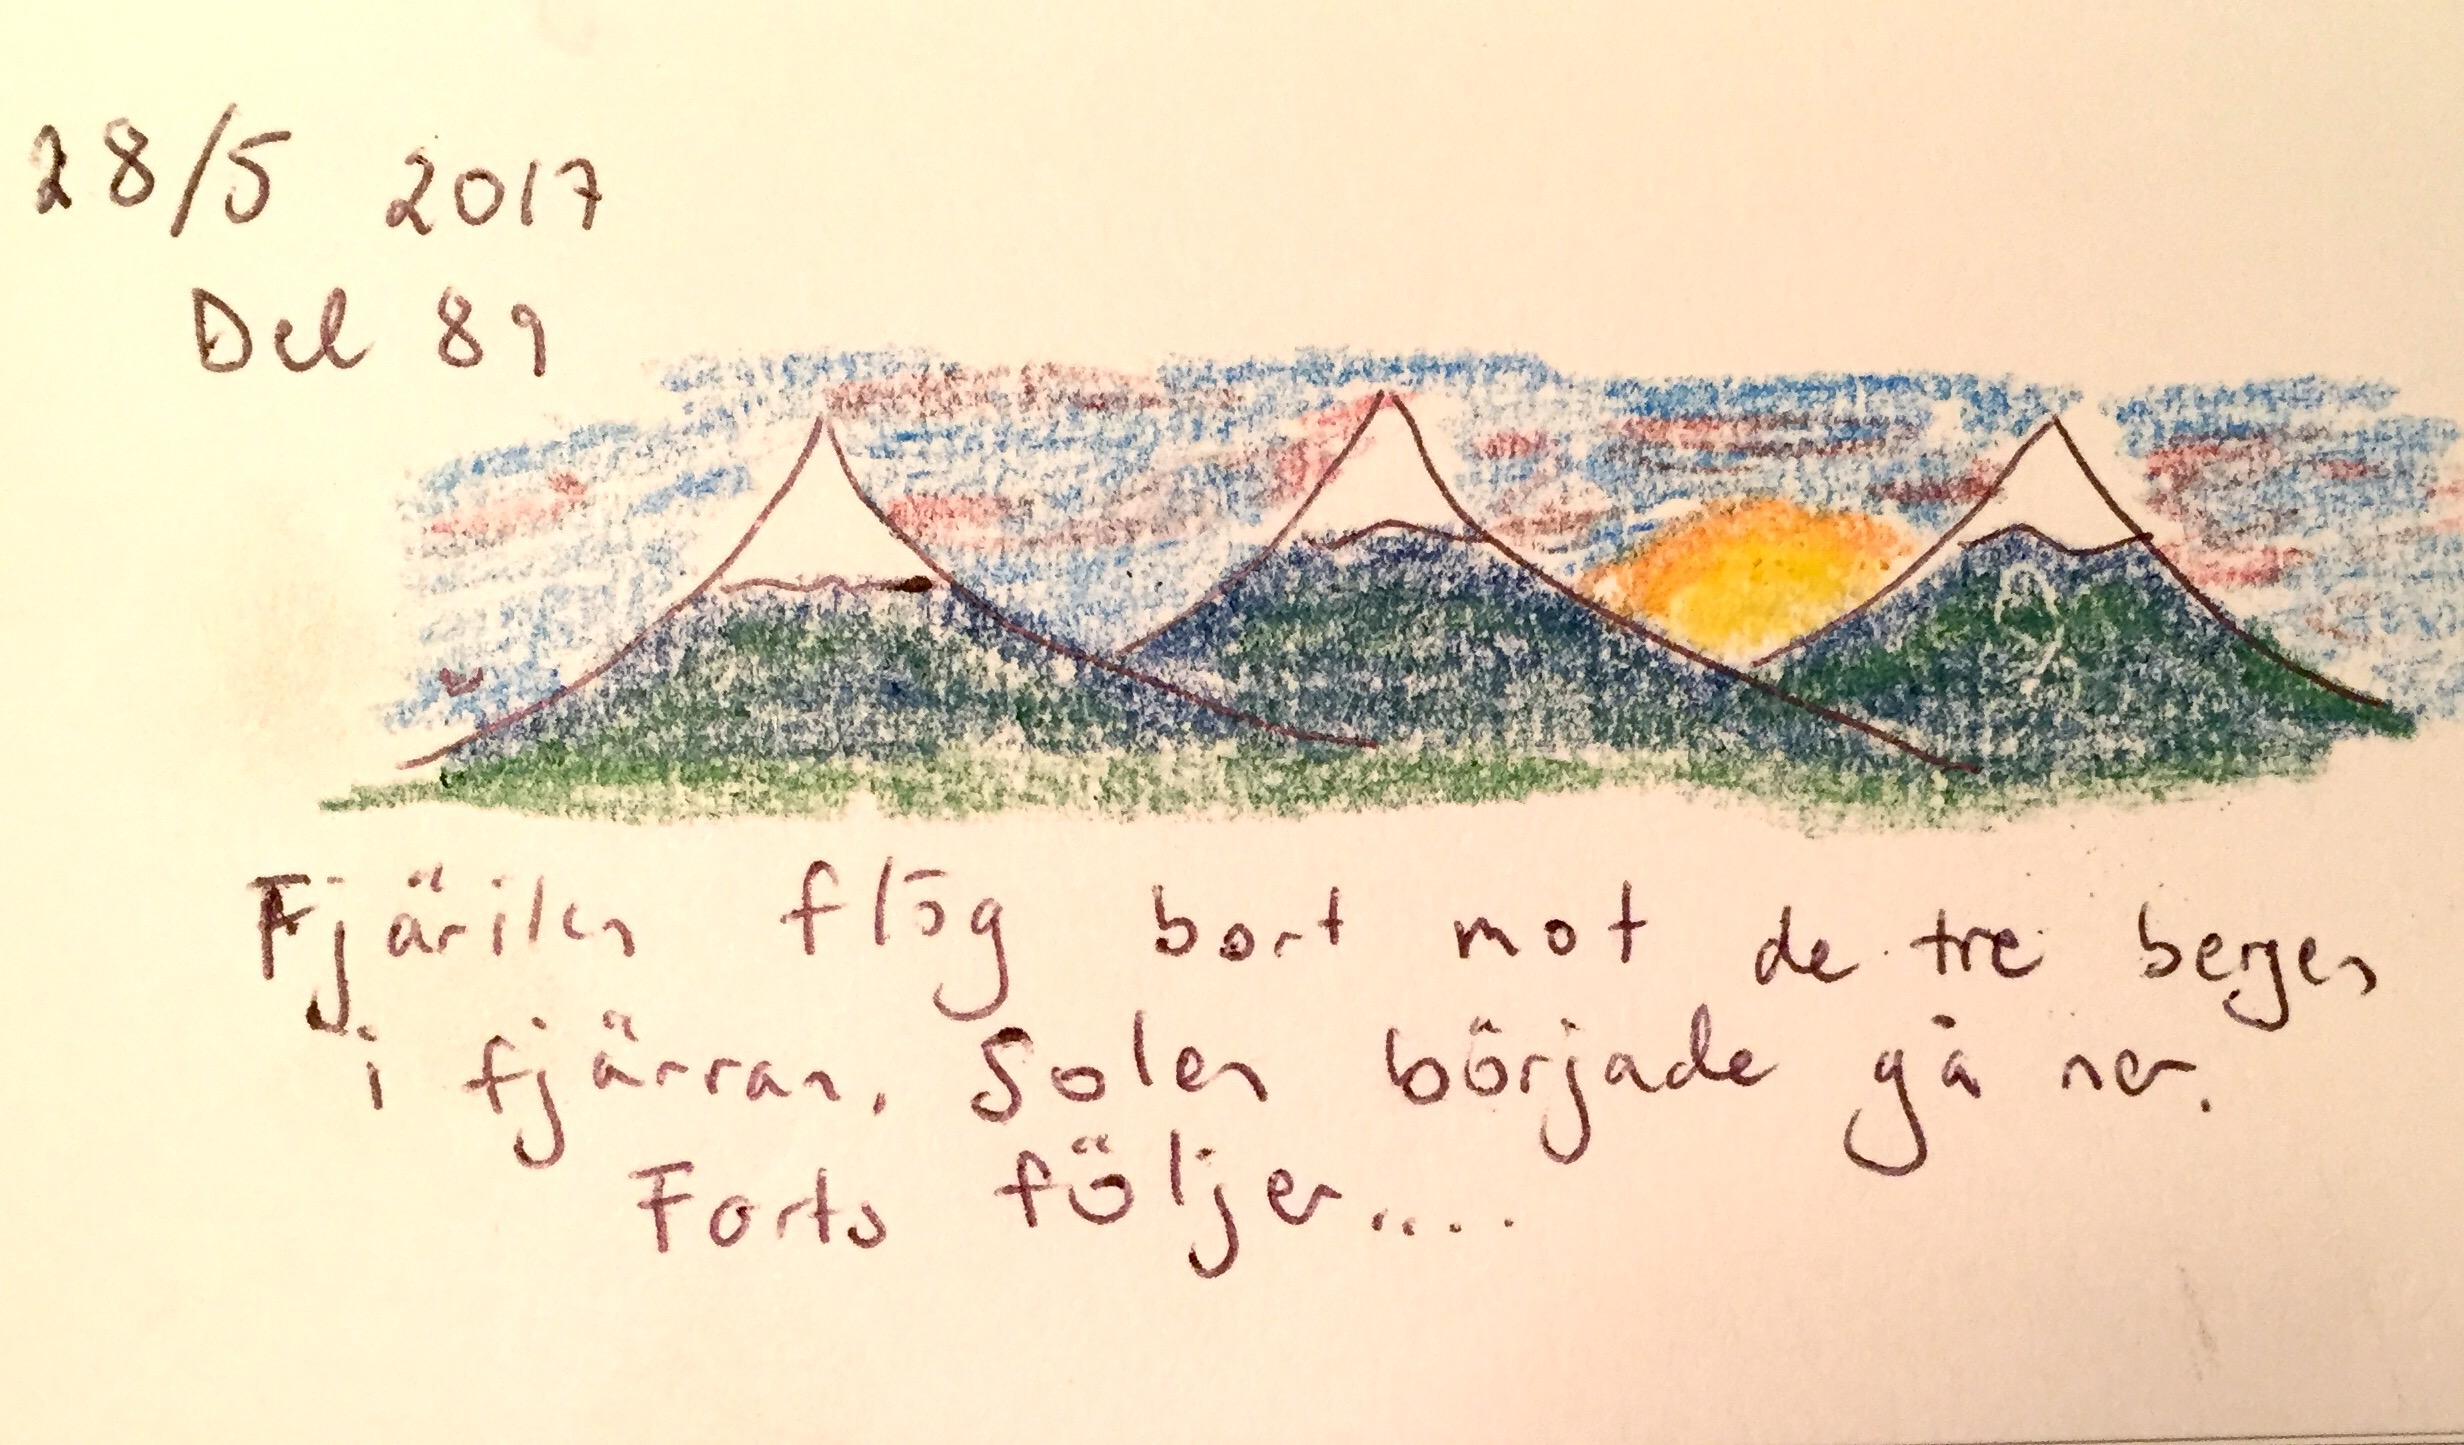 28/5 2017
Del 89
Fjärilen flög bort mot de tre bergen
i fjärran. Solen började gå ner.
Forts följer....